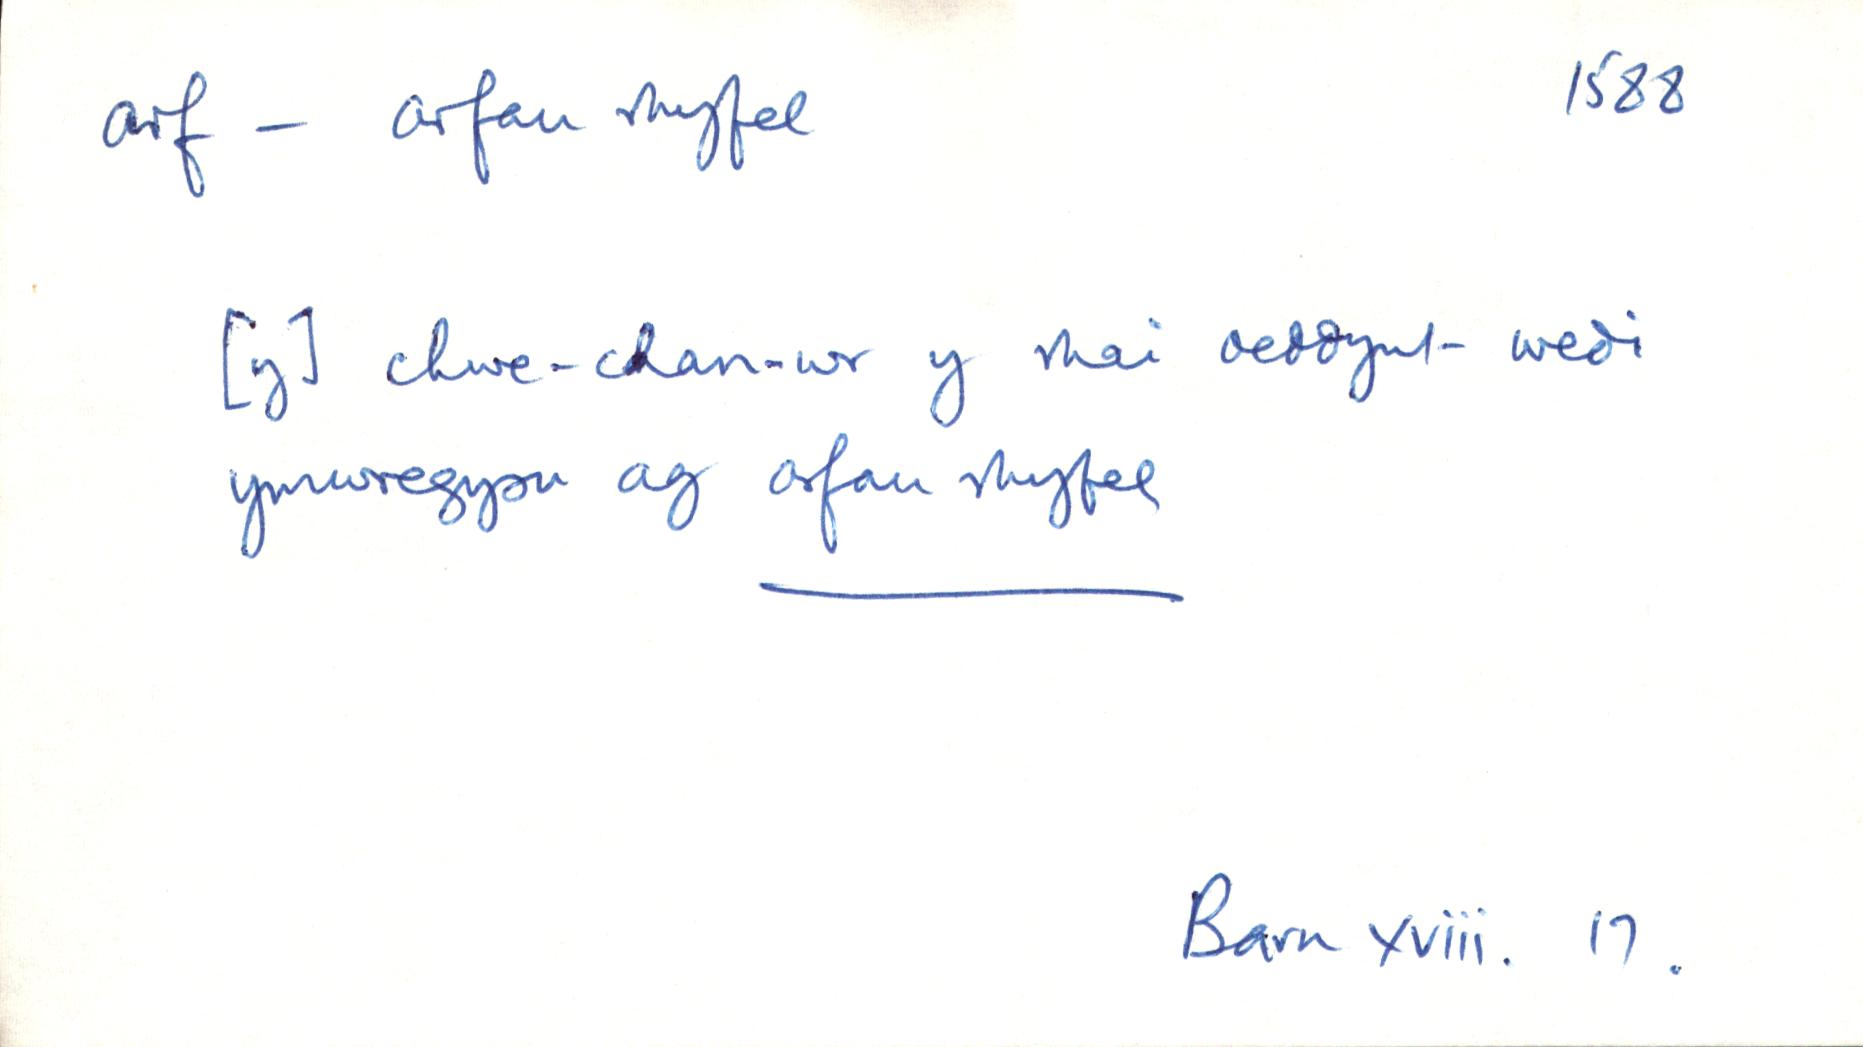 arf – arfau rhyfel 1588
[y] chwe-chan-wr y rhai oeddynt wedi
ymwregysu ag arfau rhyfel
Barn xviii. 17.